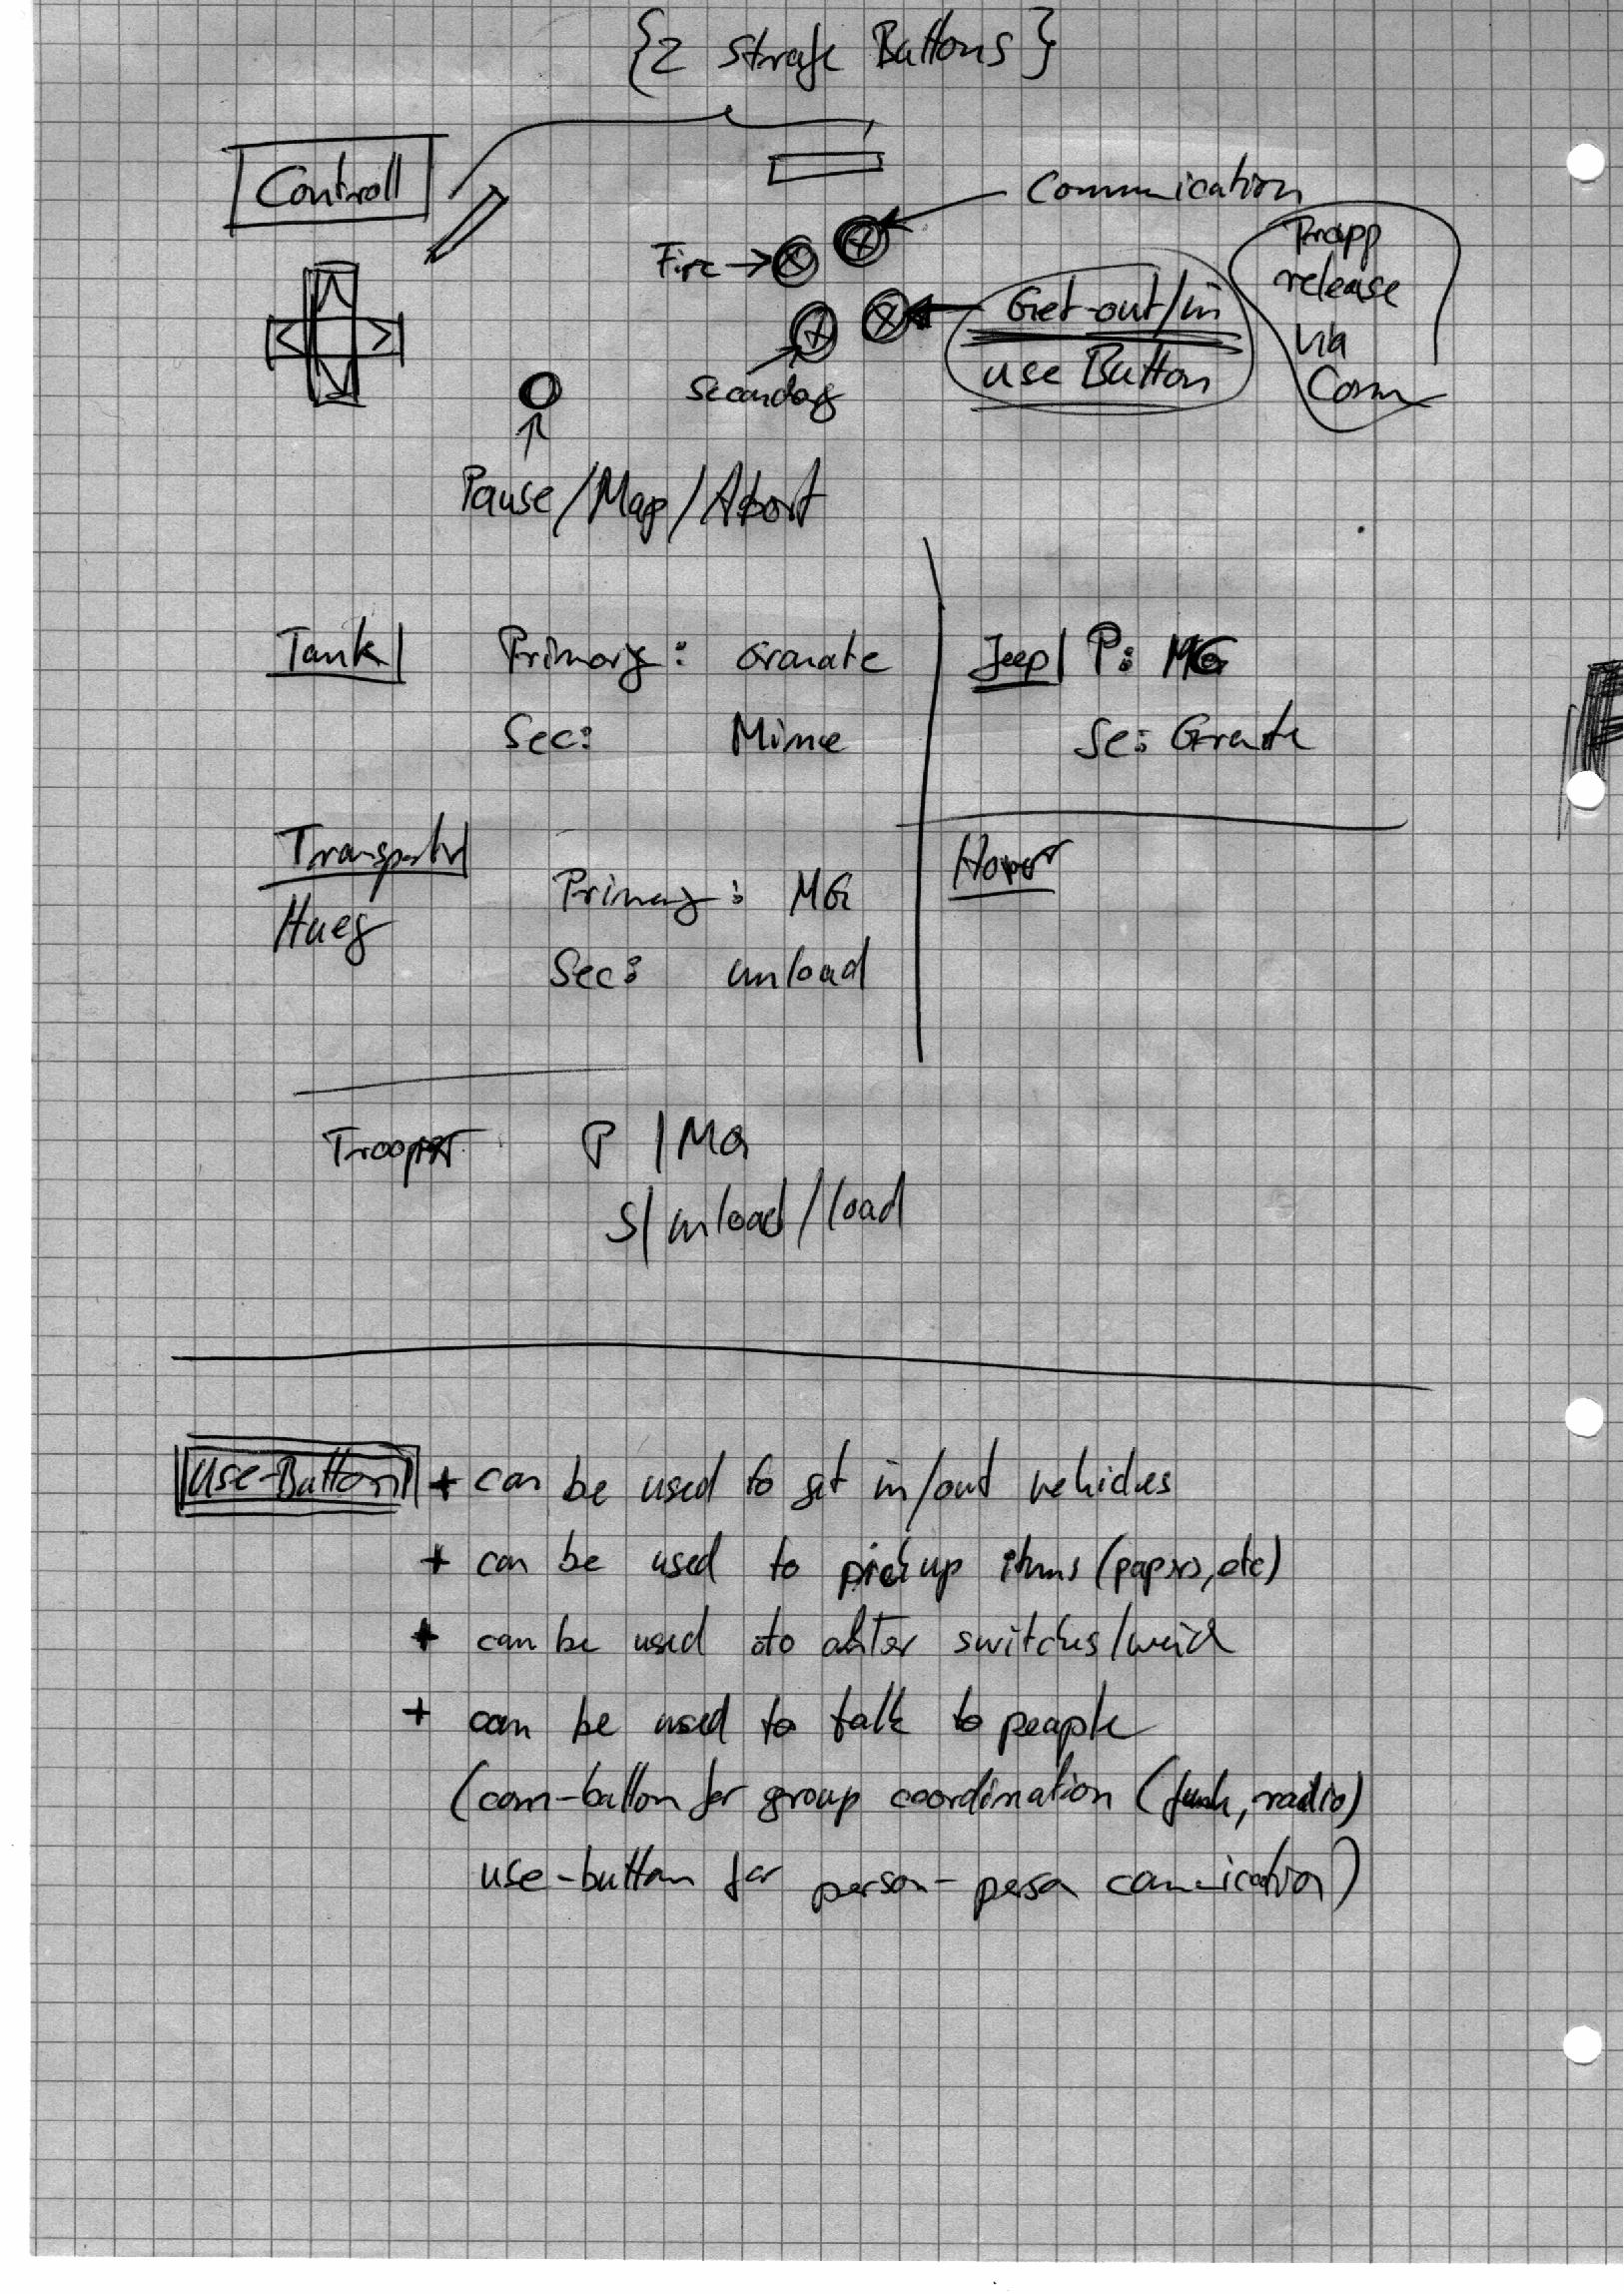 {2 Strafe Buttons}
Controll
Communication
Fire
Get-out/in
use Button
Secondary
release
via
Comm
Pause/Map/Abort
Tank
Primary: Granate
Sec: Mine
Jeep P: MG
Se: Granate
Transporter
Huey
Primary: MG
Sec: unload
Hover
Trooper P/MG
S/unload/load
Use-Button + can be used to get in/out vehicles
+ can be used to pickup items (papers, etc)
+ can be used to alter switches/
+ can be used to talk to people
(com-button for group coordination (funk, radio)
use-button for person-person comunication)